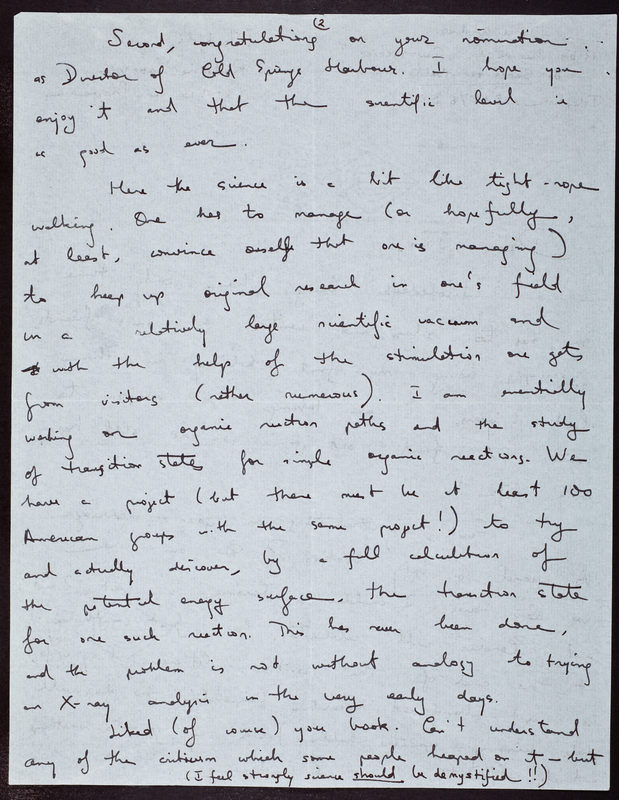 (2
Second, congratulations on your nomination
as Director of Cold Springs Harbour. I hope you
enjoy it and that the scientific level is
as good as ever.
Here the science is a bit like tight-rope
walking. One has to manage (or hopefully,
at least, convince oneself that one is managing)
to keep up original research in one's field
in a relatively large scientific vacuum and
with the help of the stimulation one gets
from visitors (rather numerous). I am essentially
working on organic reaction paths and the study
of transition states for simple organic reactions. We
have a project (but there must be at least 100
American groups with the same project!) to try
and actually discover, by a full calculation of
the potential energy surface, the transition state
for one such reaction. This has never been done,
and the problem is not without analogy to trying
an X-ray analysis in the very early days.
Liked (of course) your book. Can't understand
any of the criticism which some people heaped on it – but
(I feel strongly science should be demystified!!)